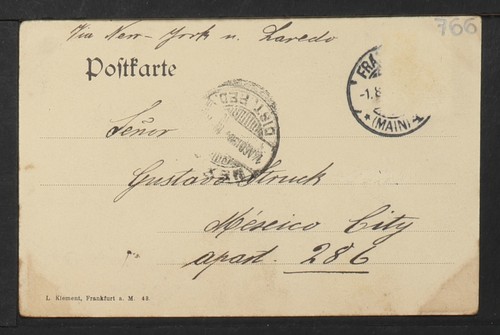 766
Via New-York u. Laredo
Postkarte
FRA
-1.8
* (MAIN) 1
DIST. FED.
MEX
Señor
Gustavo Struck
Méxcico City
apart. 286
L. Klement, Frankfurt a. M. 43.